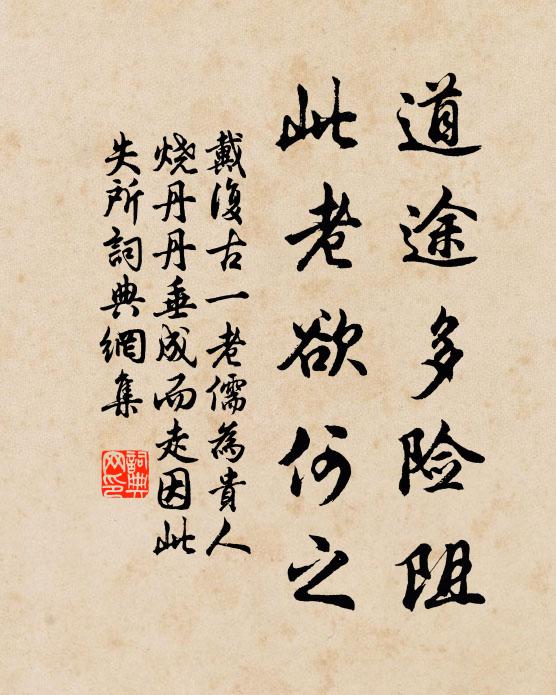 道途多险阻
此老欲何之
戴復古一老儒為貴人
烧丹丹垂成而走因此
失所詞典網集
詞典网印